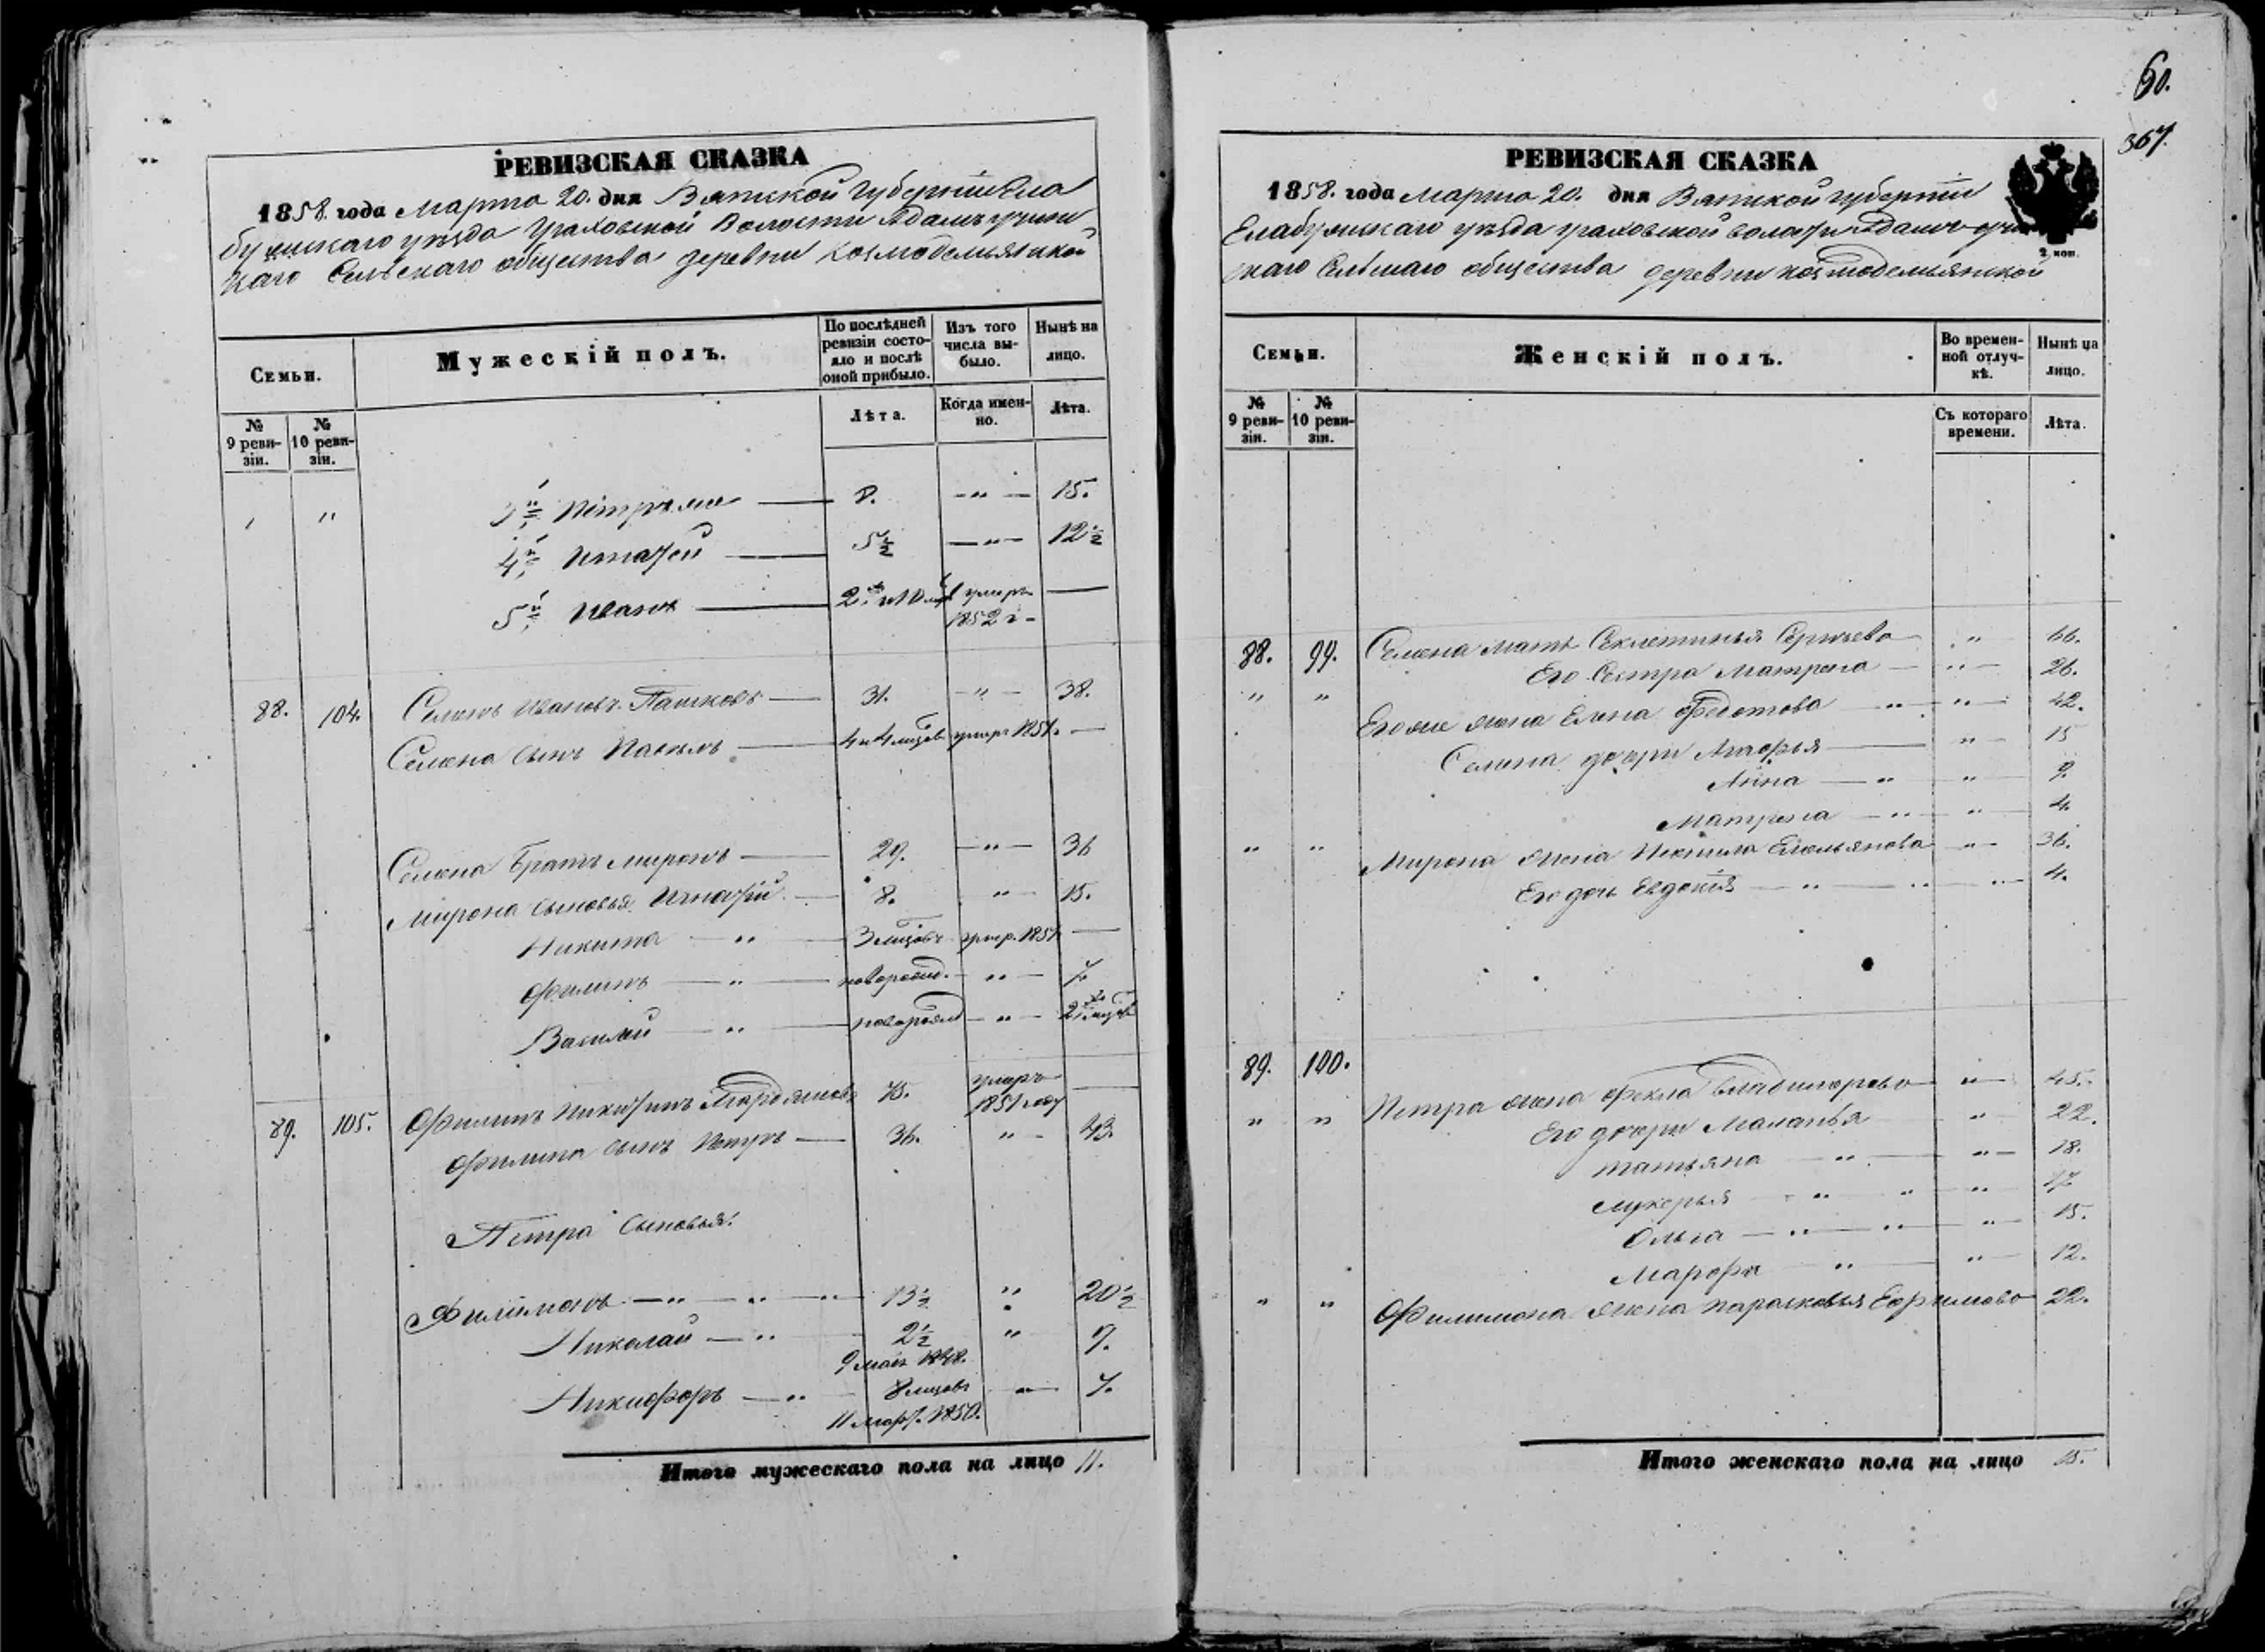 РЕВИЗСКАЯ СКАЗКА
1858. года Марта 20. дня Вятской губерніи Ела
бужскаго уѣзда Граховской Волости Адамъ учин
скаго Сельскаго общества деревни Козмодемьянской
Семьи.
Мужескій полъ.
По послѣдней ревизіи состояло и послѣ оной прибыло.
Изъ того числа выбыло.
Нынѣ на лицо.
№ 9 ревизіи.
№ 10 ревизіи.
Лѣта.
Когда именно.
Лѣта.
" 8. — " — 15.
4й Игнатей — 5½ — " — 12½
5й Иванъ — 2 и 10 умеръ 1852 г —
88. 104. Семенъ Ивановъ Пашковъ — 31. — " — 38.
Семена сынъ — 4 и 4 мцовъ умер 1851. —
Семена братъ Миронъ — 29. — " — 36
Мирона сыновья Игнатій — 8. " — 15.
Никита — " — 3 мцовъ умер. 1851 —
Филипъ — " — новорожд. — " — 7.
Василий — " — новорожд — " — 2
89. 105. Филипъ Никитинъ 75. умеръ 1851 году —
Филипа сынъ Петръ — 36. " — 43.
Петра сыновья:
Филимонъ — " — " — " 13½ " 20½
Николай — " 2½ " 9.
9 мая 1848.
Никифоръ — " — 8 мцовъ " 7.
11 март. 1850.
Итого мужескаго пола на лицо 11.
60.
367.
РЕВИЗСКАЯ СКАЗКА
1858. года Марта 20. дня Вятской губерніи
Елабужскаго уѣзда Граховской волости Адамъ-учин
скаго Сельскаго общества деревни Козмодемьянской
2 коп.
Семьи.
Женскій полъ.
Во временной отлучкѣ.
Нынѣ на лицо.
№ 9 ревизіи.
№ 10 ревизіи.
Съ котораго времени.
Лѣта.
88. 99. Семена мать Секлетинья Сергѣева " 66.
Его сестра Матрена — " — 26.
" " Его же жена Елена Федотова " " — 42.
Семена дочери Агафья — " — 15
Анна — " " 9.
Матрена — " " — 4.
" " Мирона жена Емельянова " — 36.
Его дочь Евдокія — " — " — " — 4.
89. 100.
" " Петра жена Фекла Владимирова " — 45.
Его дочери Маланья " — 22.
татьяна — " — " — 18.
Лукерья — " " — "
Ольга — " — " — " — 15.
Марфа " — " — 12.
" " Филимона жена Парасковья Ефимова 22.
Итого женскаго пола на лицо 15.